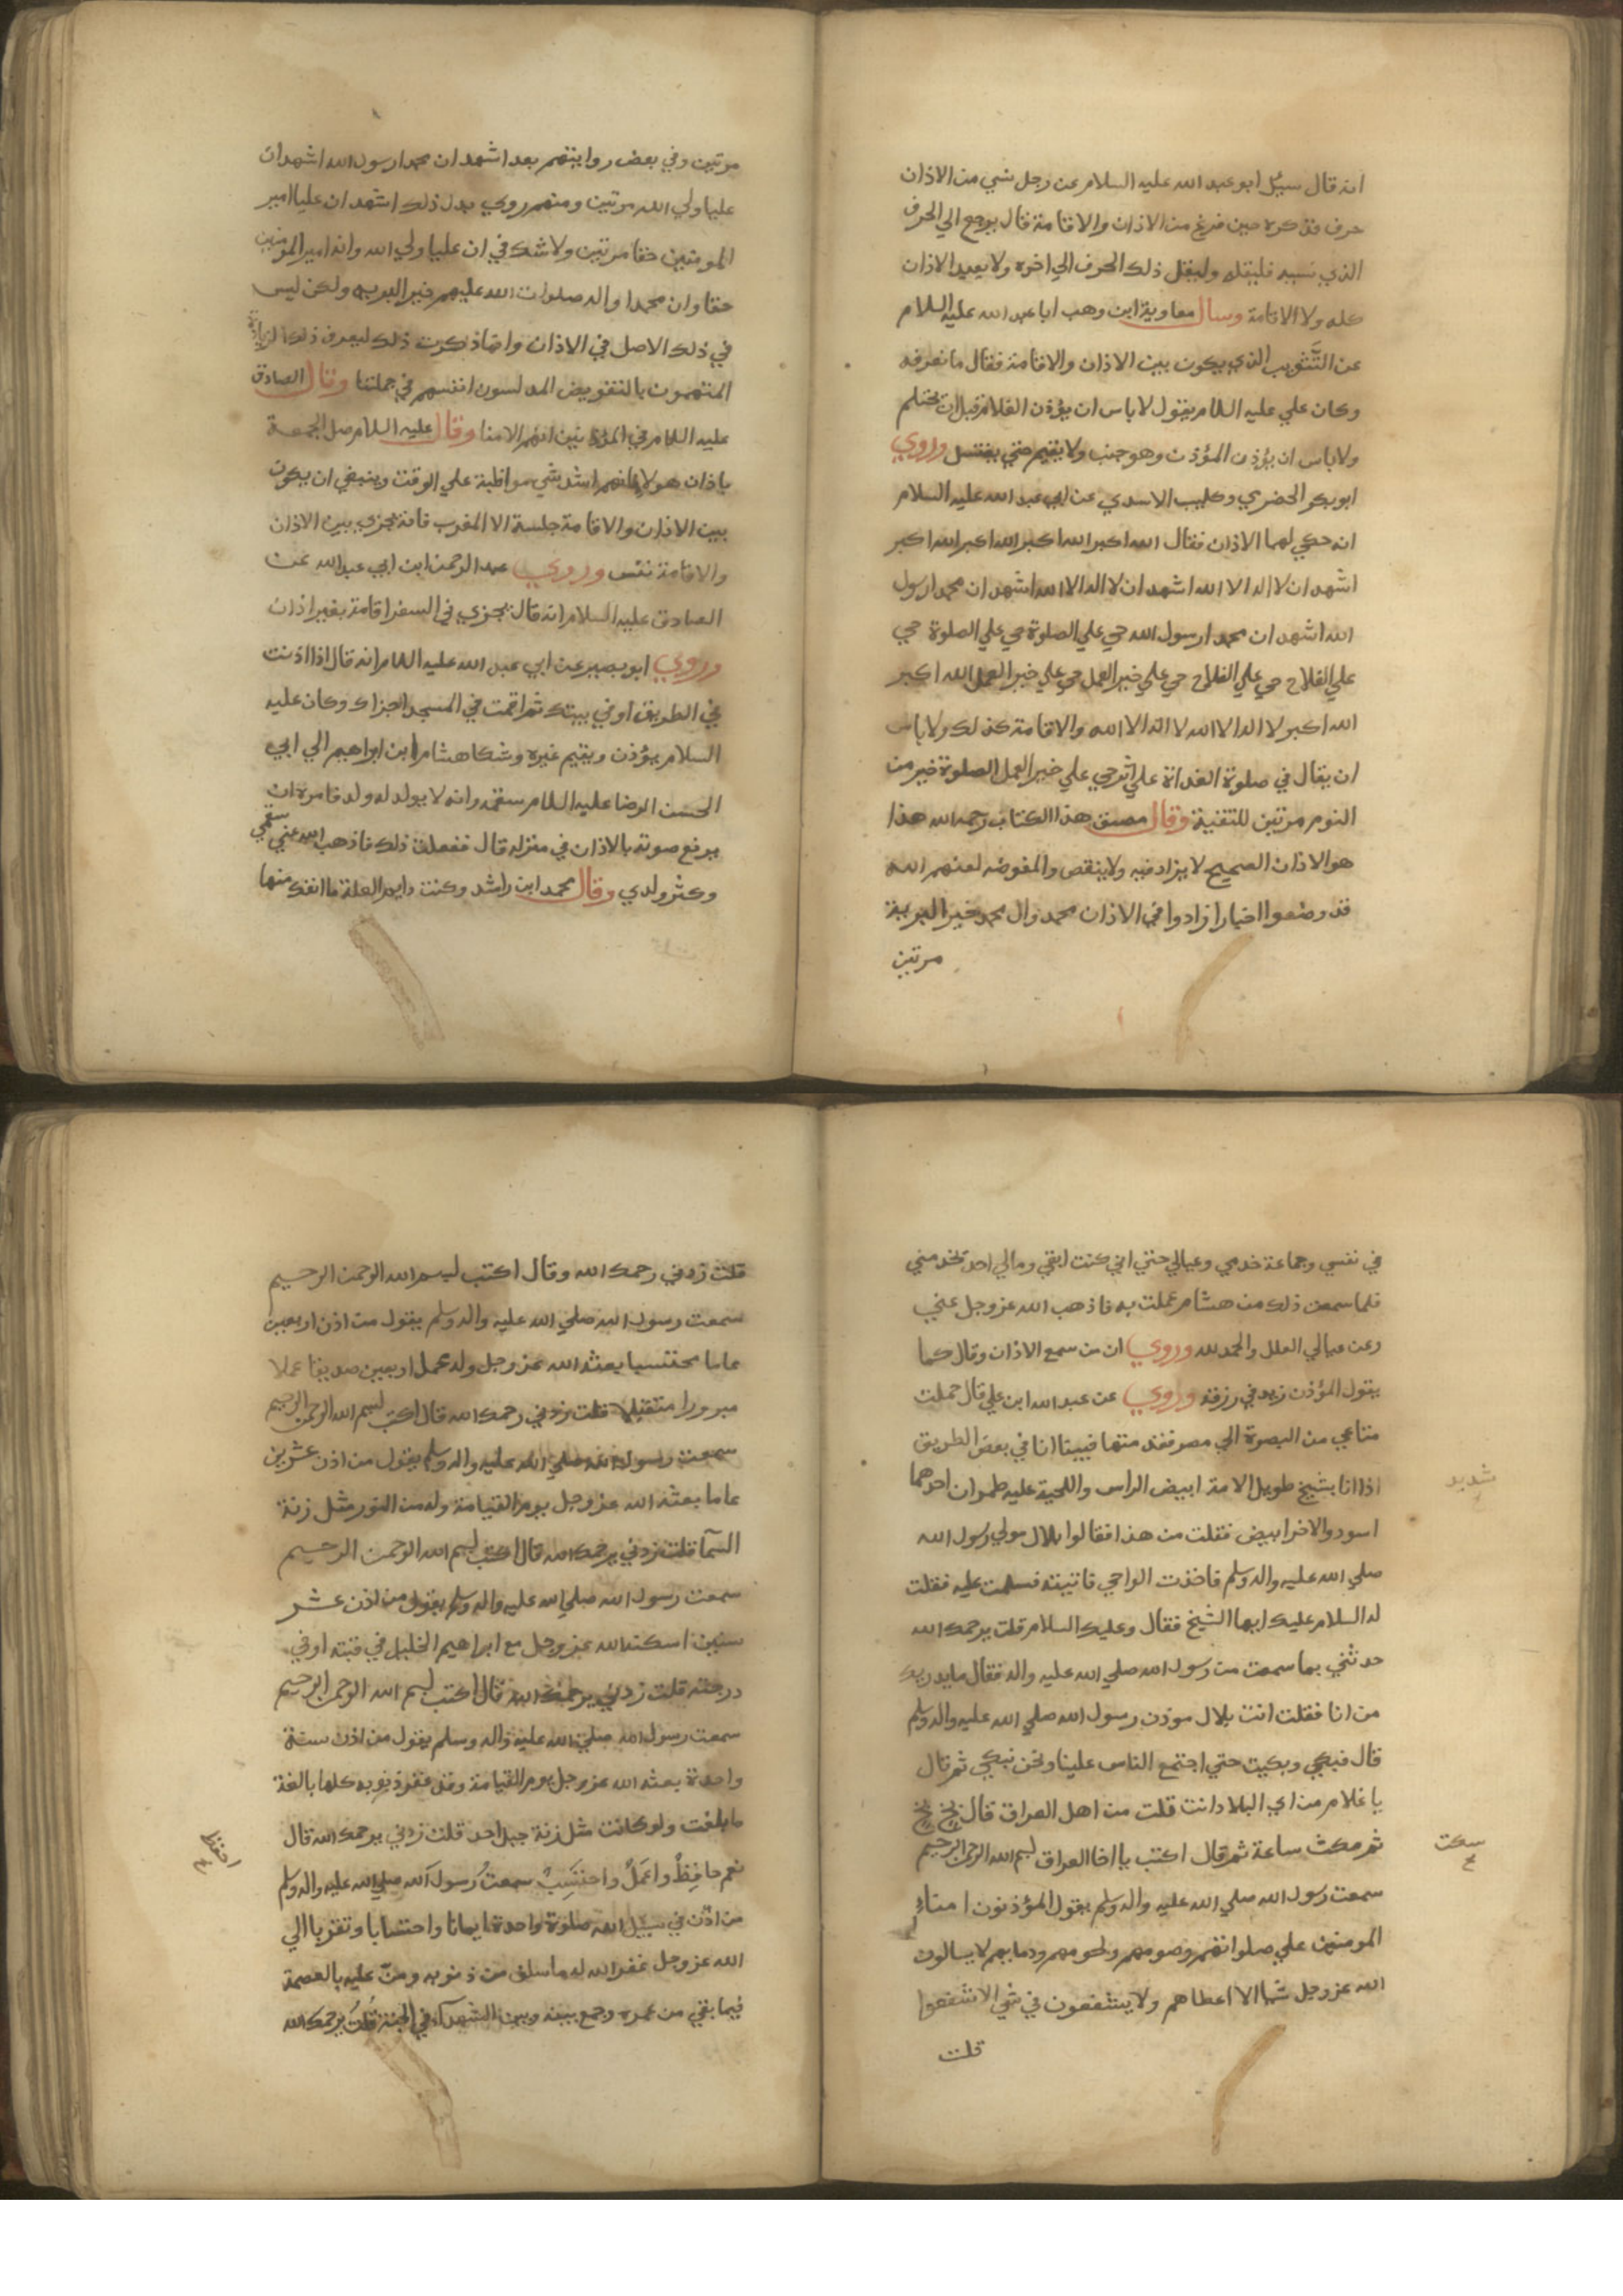 انه قال سيل ابو عبد الله عليه السلام عن رجل نسي من الاذان
حرف فذكره حين فرغ من الاذان والاقامة قال يرجع الي الحرف
الذي نسيه فليقله وليقل ذلك الحرف الي اخره ولا يعيد الاذان
كله ولا الاقامة وسال معاوية ابن وهب ابا عبد الله عليه السلام
عن التَّثويب الذي يكون بين الاذان والاقامة فقال ما نعرفه
وكان علي عليه السلام يقول لا باس ان يؤذن الغلام قبل ان يحتلم
ولا باس ان يؤذن المؤذن وهو جنب ولا يقيم حتي يغتسل وروي
ابو بكر الحضرمي وكليب الاسدي عن ابي عبد الله عليه السلام
انه حكي لهما الاذان فقال الله اكبر الله اكبر الله اكبر الله اكبر
اشهد ان لا اله الا الله اشهد ان لا اله الا الله اشهد ان محمدا رسول
الله اشهد ان محمدا رسول الله حي علي الصلوة حي علي الصلوة حي
علي الفلاح حي علي الفلاح حي علي خير العمل حي علي خير العمل الله اكبر
الله اكبر لا اله الا الله لا اله الا الله والاقامة كذلك ولا باس
ان يقال في صلوة الغداة علي اثر حي علي خير العمل الصلوة خير من
النوم مرتين للتقية وقال مصنف هذا الكتاب رحمه الله هذا
هو الاذان الصحيح لا يزاد فيه ولا ينقص والمفوضه لعنهم الله
قد وضعوا اخبارا زادوا في الاذان محمد وال محمد خير البرية
مرتين
مرتين وفي بعض رواياتهم بعد اشهد ان محمدا رسول الله اشهد ان
عليا ولي الله مرتين ومنهم روي بدل ذلك اشهد ان عليا امير
المومنين حقا مرتين ولا شك في ان عليا ولي الله وانه امير المومنين
حقا وان محمدا واله صلوات الله عليهم خير البريه ولكن ليس
في ذلك الاصل في الاذان وانما ذكرت ذلك ليعرف ذلك الزيادة
المتهمون بالتفويض المدلسون انفسهم في جملتنا وقال الصادق
عليه السلام في المؤذنين انهم الامنا وقال عليه السلام صل الجمعة
باذان هولا فانهم اشد شي مواظبة علي الوقت وينبغي ان يكون
بين الاذان والاقامة جلسة الا المغرب فانه يجزي بين الاذان
والاقامة نفس وروي عبد الرحمن ابن ابي عبد الله عن
الصادق عليه السلام انه قال يجزي في السفر اقامة بغير اذان
وروي ابو بصير عن ابي عبد الله عليه السلام انه قال اذا اذنت
في الطريق او في بيتك ثم اقمت في المسجد اجزاك وكان عليه
السلام يؤذن ويقيم غيره وشكا هشام ابن ابراهيم الي ابي
الحسن الرضا عليه السلام سقمه وانه لا يولد له ولد فامره ان
يرفع صوته بالاذان في منزله قال ففعلت ذلك فاذهب الله عني سقمي
وكثر ولدي وقال محمد ابن راشد وكنت دايم العلة ما انفك منها
في نفسي وجماعة خدمي وعيالي حتي اني كنت ابقي ومالي احد يخدمني
فلما سمعن ذلك من هشام عملت به فاذهب الله عز وجل عني
وعن عيالي العلل والحمد لله وروي ان من سمع الاذان وقال كما
يقول المؤذن زيد في رزقه وروي عن عبد الله ابن علي قال حملت
متاعي من البصرة الي مصر فقدمتها فبينا انا في بعض الطريق
اذا انا بشيخ طويل الامة ابيض الراس واللحية عليه طمران احدهما
شديد
اسود والاخر ابيض فقلت من هذا فقالوا بلال مولي رسول الله
صلي الله عليه واله وسلم فاخذت الواحي فاتيته فسلمت عليه فقلت
له السلام عليك ايها الشيخ فقال وعليك السلام قلت يرحمك الله
حدثني بما سمعت من رسول الله صلي الله عليه واله فقال ما يدريك
من انا فقلت انت بلال موذن رسول الله صلي الله عليه واله وسلم
قال فبكي وبكيت حتي اجتمع الناس علينا ونحن نبكي ثم قال
يا غلام من اي البلاد انت قلت من اهل العراق قال بخ بخ
ثم مكث ساعة ثم قال اكتب يا اخا العراق بسم الله الرحمن الرحيم
سكت
سمعت رسول الله صلي الله عليه واله وسلم يقول المؤذنون امناء
المومنين علي صلواتهم وصومهم ولحومهم ودمايهم لا يسالون
الله عز وجل شيا الا اعطاهم ولا يشفعون في شي الا شفعوا
قلت
قلت زدني رحمك الله وقال اكتب بسم الله الرحمن الرحيم
سمعت رسول الله صلي الله عليه واله وسلم يقول من اذن اربعين
عاما محتسبا بعثه الله عز وجل وله عمل اربعين صديقا عملا
مبرورا متقبلا قلت زدني رحمك الله قال اكتب بسم الله الرحمن الرحيم
سمعت رسول الله صلي الله عليه واله وسلم يقول من اذن عشرين
عاما بعثه الله عز وجل يوم القيامة وله من النور مثل زنة
السمآ قلت زدني يرحمك الله قال اكتب بسم الله الرحمن الرحيم
سمعت رسول الله صلي الله عليه واله وسلم يقول من اذن عشر
سنين اسكنه الله عز وجل مع ابراهيم الخليل في قبته او في
درجته قلت زدني يرحمك الله قال اكتب بسم الله الرحمن الرحيم
سمعت رسول الله صلي الله عليه واله وسلم يقول من اذن سنة
واحدة بعثه الله عز وجل يوم القيامة وقد غفر ذنوبه كلها بالغة
ما بلغت ولو كانت مثل زنة جبل احد قلت زدني يرحمك الله قال
نعم حافِظْ واعمَلْ واحتَسِبْ سمعتُ رسول الله صلي الله عليه واله وسلم
احفظ
من اذّن في سبيل الله صلوة واحدة ايمانا واحتسابا وتقربا الي
الله عز وجل غفر الله له ما سلف من ذنوبه ومنّ عليه بالعصمة
فيما بقي من عمره وجمع بينه وبين الشهدآء في الجنة قلت يرحمك الله